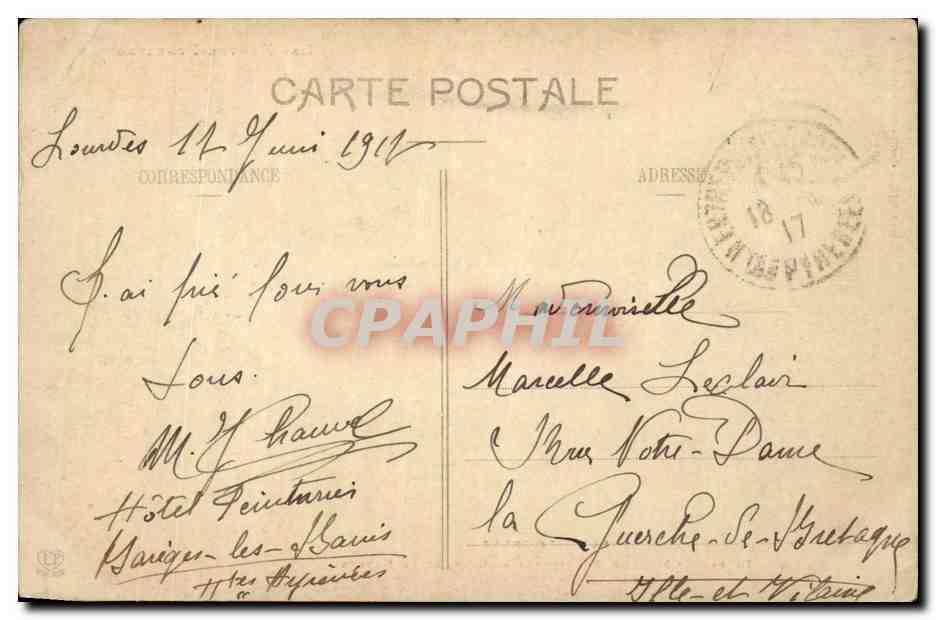 CARTE POSTALE
Lourdes 17 Juin 1917
CORRESPONDANCE
J'ai prié pour vous
tous.
Hôtel
Barèges-les-Bains
Htes Pyrénées
ADRESSE
18
17
PYRENEES
Mademoiselle
Marcelle Leclair
Rue Notre-Dame
la Guerche-de-Bretagne
Ille-et-Vilaine
CPAPHIL